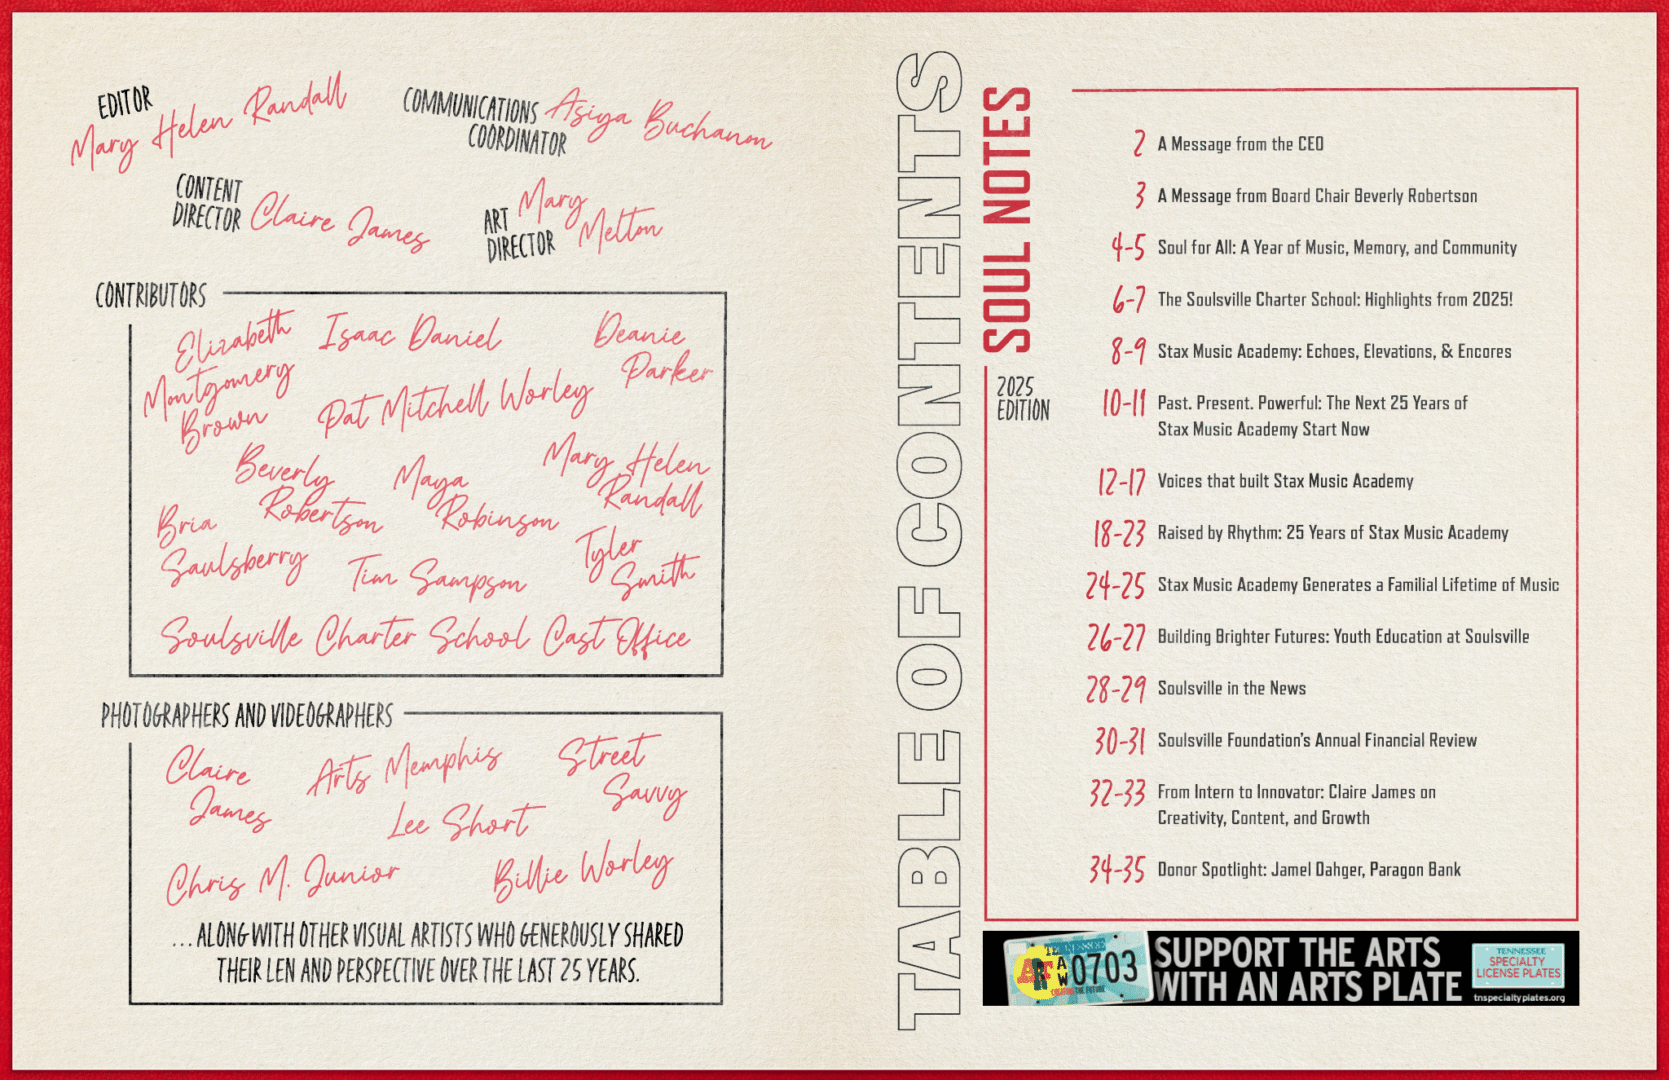 EDITOR
Mary Helen Randall
COMMUNICATIONS
COORDINATOR
Asiya Buchanan
CONTENT
DIRECTOR
Claire James
ART
DIRECTOR
Mary
Melton
CONTRIBUTORS
Elizabeth
Montgomery
Brown
Isaac Daniel
Deanie
Parker
Pat Mitchell Worley
Beverly
Robertson
Maya
Robinson
Mary Helen
Randall
Bria
Saulsberry
Tim Sampson
Tyler
Smith
Soulsville Charter School Cast Office
PHOTOGRAPHERS AND VIDEOGRAPHERS
Claire
James
Arts Memphis
Street
Savvy
Lee Short
Chris M. Junior
Billie Worley
...ALONG WITH OTHER VISUAL ARTISTS WHO GENEROUSLY SHARED
THEIR LEN AND PERSPECTIVE OVER THE LAST 25 YEARS.
TABLE OF CONTENTS
SOUL NOTES
2025
EDITION
2 A Message from the CEO
3 A Message from Board Chair Beverly Robertson
4-5 Soul for All: A Year of Music, Memory, and Community
6-7 The Soulsville Charter School: Highlights from 2025!
8-9 Stax Music Academy: Echoes, Elevations, & Encores
10-11 Past. Present. Powerful: The Next 25 Years of
Stax Music Academy Start Now
12-17 Voices that built Stax Music Academy
18-23 Raised by Rhythm: 25 Years of Stax Music Academy
24-25 Stax Music Academy Generates a Familial Lifetime of Music
26-27 Building Brighter Futures: Youth Education at Soulsville
28-29 Soulsville in the News
30-31 Soulsville Foundation's Annual Financial Review
32-33 From Intern to Innovator: Claire James on
Creativity, Content, and Growth
34-35 Donor Spotlight: Jamel Dahger, Paragon Bank
TENNESSEE
ART
AW
0703
CREATING THE FUTURE
SUPPORT THE ARTS
WITH AN ARTS PLATE
TENNESSEE
SPECIALTY
LICENSE PLATES
tnspecialtyplates.org